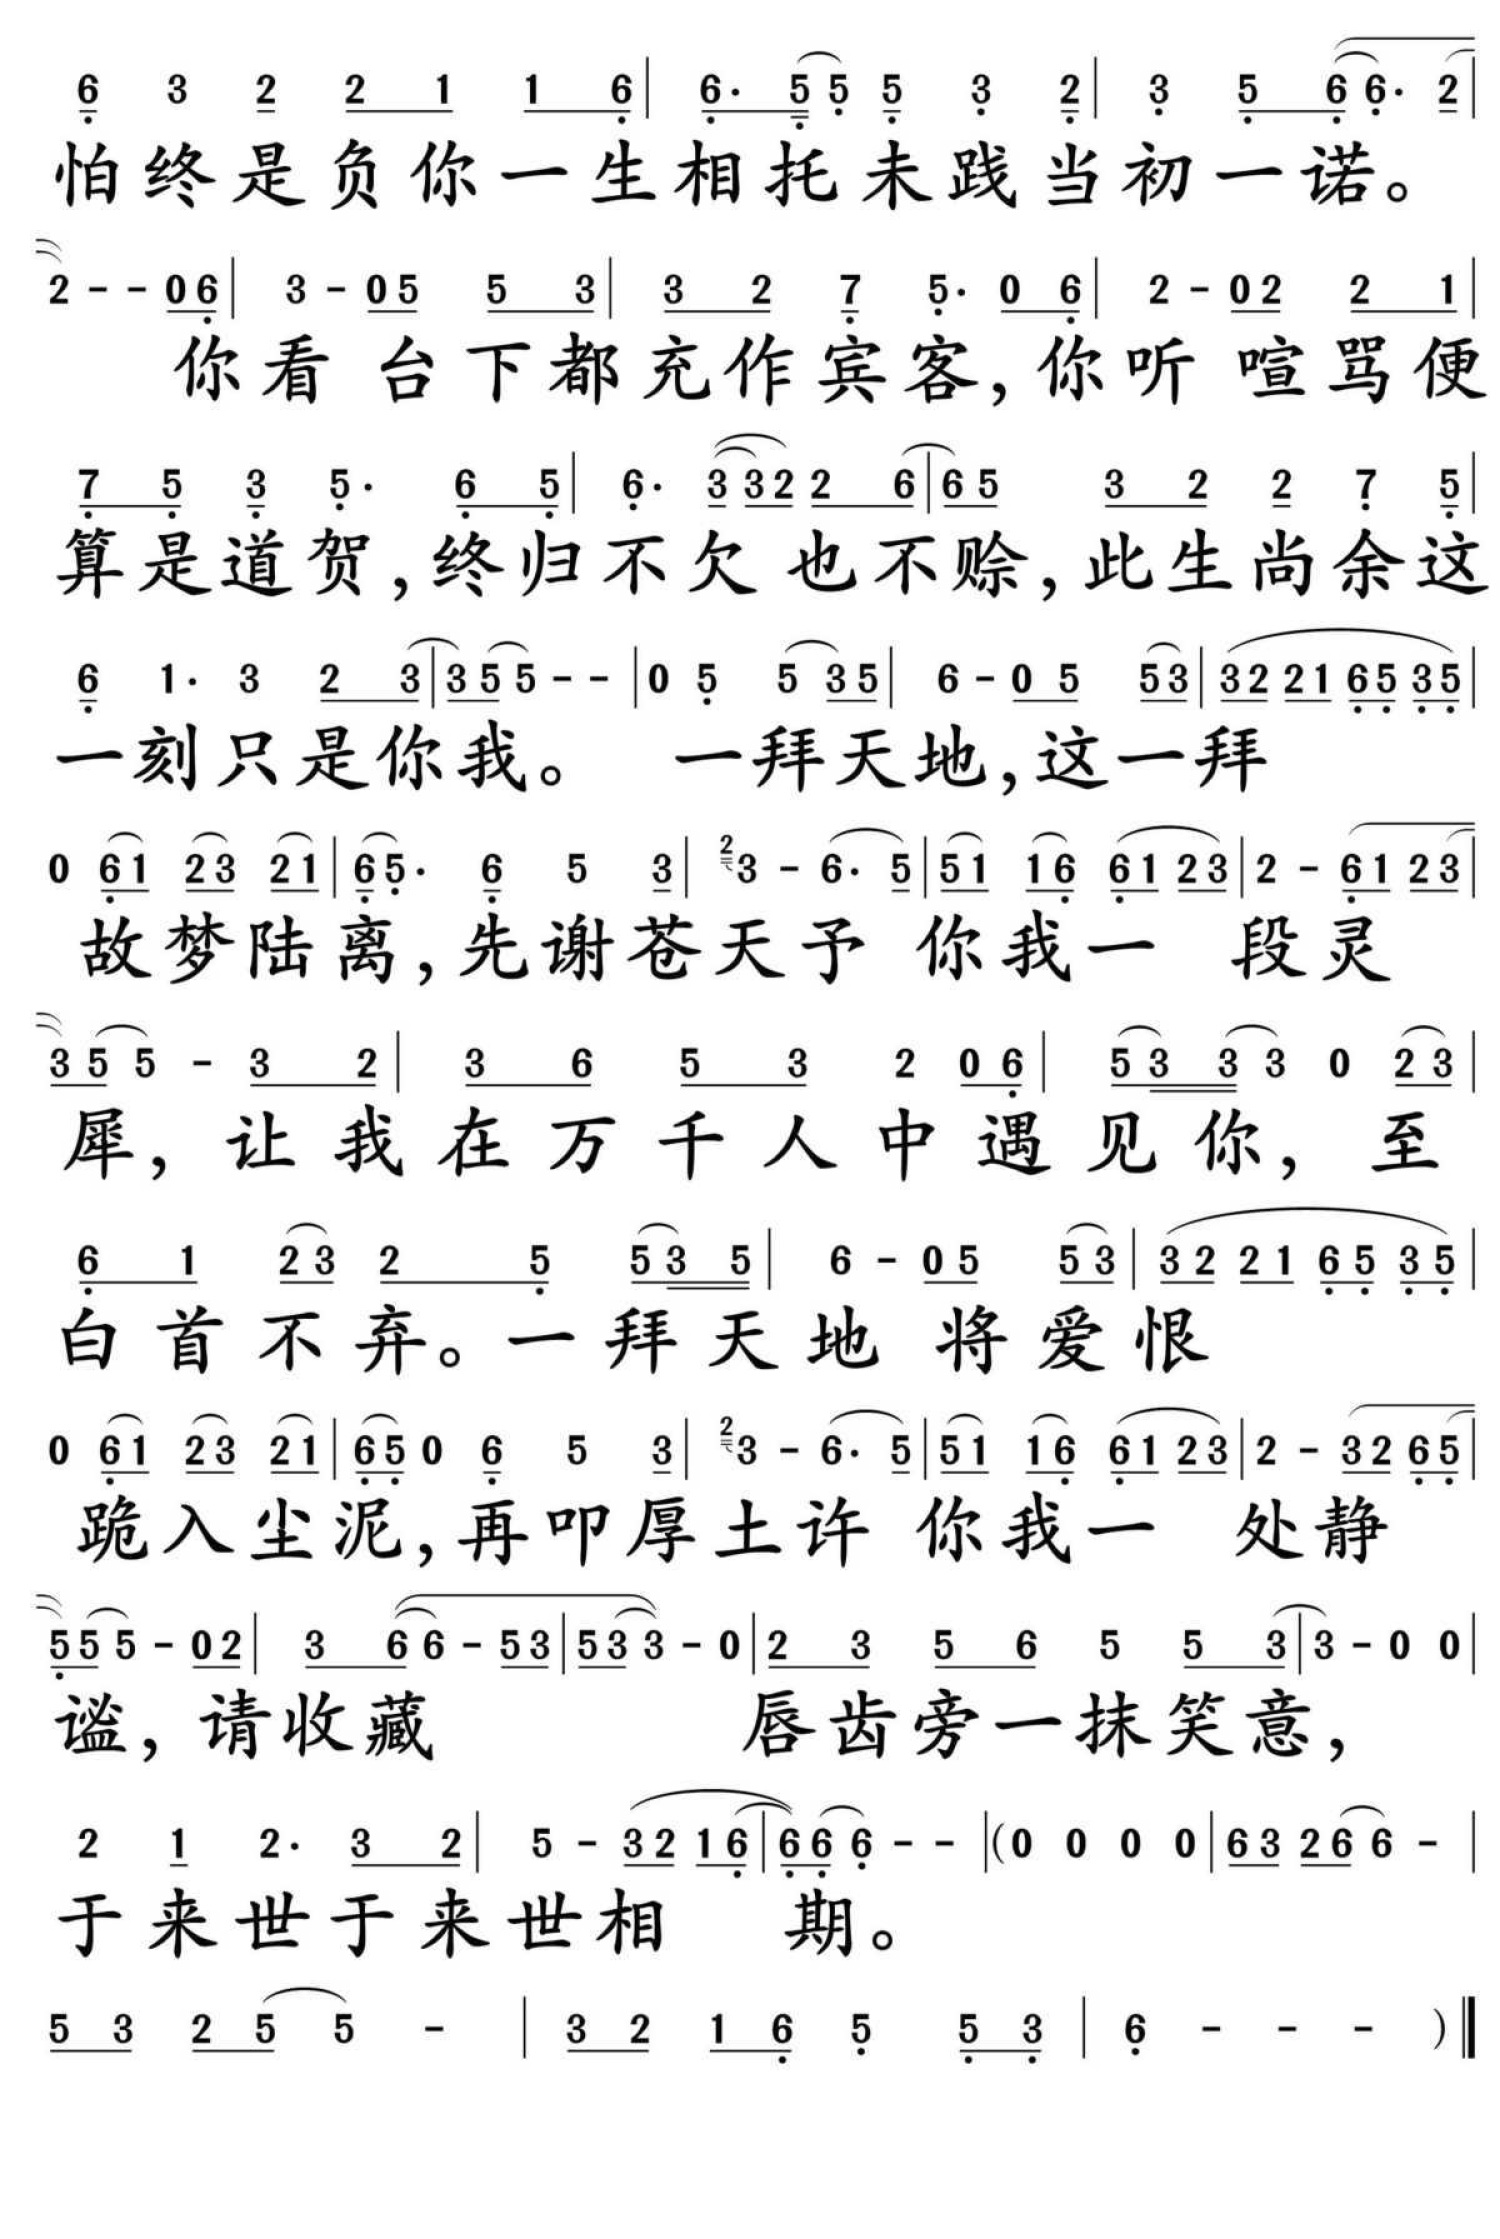 6 3 2 2 1 1 6 | 6· 5 5 5 3 2 | 3 5 6 6· 2 |
怕终是负你一生相托未践当初一诺。
2 - - 0 6 | 3 - 0 5 5 3 | 3 2 7 5· 0 6 | 2 - 0 2 2 1 |
你看 台下都充作宾客,你听 喧骂便
7 5 3 5· 6 5 | 6· 3 3 2 2 6 | 6 5 3 2 2 7 5 |
算是道贺,终归不欠 也不赊,此生尚余这
6 1· 3 2 3 | 3 5 5 - - | 0 5 5 3 5 | 6 - 0 5 5 3 | 3 2 2 1 6 5 3 5 |
一刻只是你我。 一拜天地,这一拜
0 6 1 2 3 2 1 | 6 5· 6 5 3 | 2 3 - 6· 5 | 5 1 1 6 6 1 2 3 | 2 - 6 1 2 3 |
故梦陆离,先谢苍天予 你我一 段灵
3 5 5 - 3 2 | 3 6 5 3 2 0 6 | 5 3 3 3 0 2 3 |
犀, 让我在万千人中遇见你, 至
6 1 2 3 2 5 5 3 5 | 6 - 0 5 5 3 | 3 2 2 1 6 5 3 5 |
白首不弃。一拜天地 将爱恨
0 6 1 2 3 2 1 | 6 5 0 6 5 3 | 2 3 - 6· 5 | 5 1 1 6 6 1 2 3 | 2 - 3 2 6 5 |
跪入尘泥,再叩厚土许 你我一 处静
5 5 5 - 0 2 | 3 6 6 - 5 3 | 5 3 3 - 0 | 2 3 5 6 5 5 3 | 3 - 0 0 |
谧, 请收藏 唇齿旁一抹笑意,
2 1 2· 3 2 | 5 - 3 2 1 6 | 6 6 6 - - | (0 0 0 0 | 6 3 2 6 6 - |
于来世于来世相 期。
5 3 2 5 5 - | 3 2 1 6 5 5 3 | 6 - - - )‖